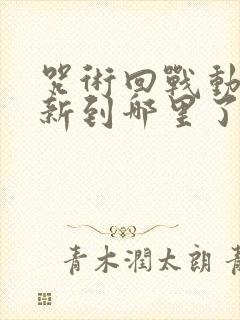 咒術回戰動
新到哪里了
青木潤太朗 青